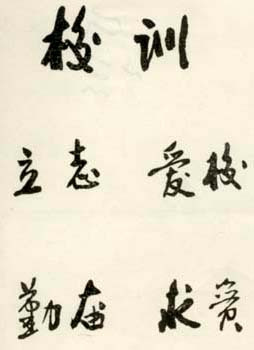 校 训
立志 爱校
勤奋 求實